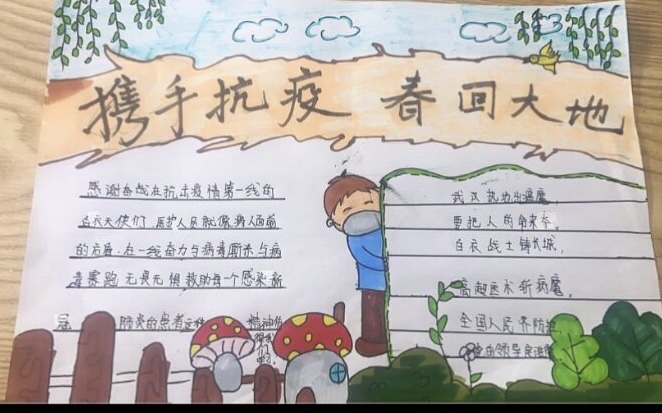 携手抗疫 春回大地
感谢奋战在抗击疫情第一线的
白衣天使们，医护人员就像病人面前
的后盾，在一线奋力与病毒厮杀，与病
毒赛跑，无畏无惧，救助每一个感染新
冠 肺炎的患者，这种 精神值
得我
们
武汉 出瘟魔，
要把人的命来夺。
白衣战士铸长城，
高超医术斩病魔。
全国人民齐防
领导